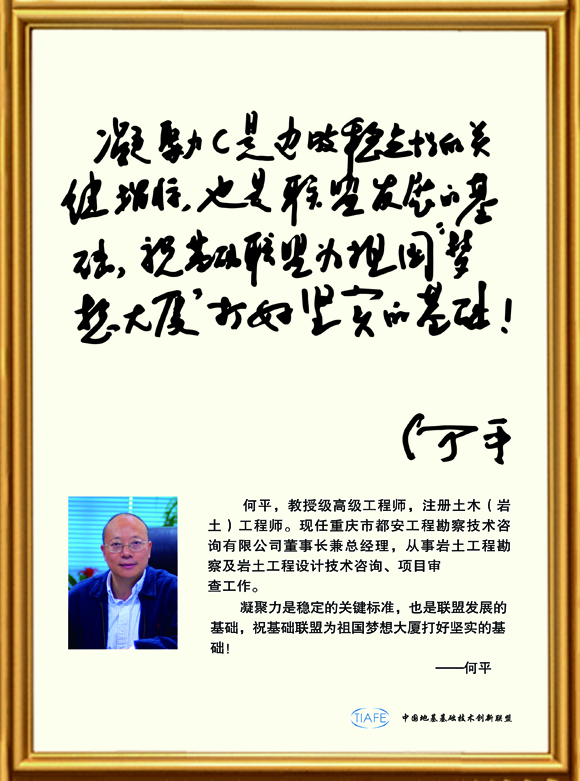 凝聚力C是边坡稳定性的关
键指标,也是联盟发展的基
础,祝基础联盟为祖国"梦
想大厦"打好坚实的基础!
何平
何平，教授级高级工程师，注册土木（岩
土）工程师。现任重庆市都安工程勘察技术咨
询有限公司董事长兼总经理，从事岩土工程勘
察及岩土工程设计技术咨询、项目审
查工作。
凝聚力是稳定的关键标准，也是联盟发展的
基础，祝基础联盟为祖国梦想大厦打好坚实的基
础！
——何平
TIAFE 中国地基基础技术创新联盟